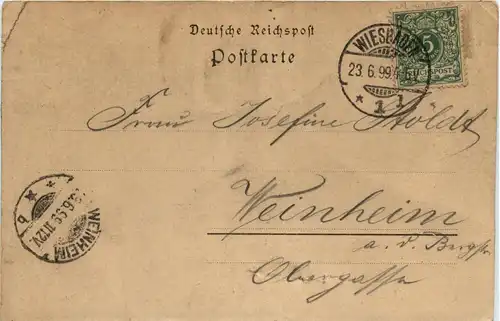 Deutsche Reichspost
Postkarte
WIESBADEN
23.6.99.
* 1 1
5
REICHSPOST
Frau Josefine Stöldt
Weinheim
a. d. Bergstr.
Obergasse
WEINHEIM